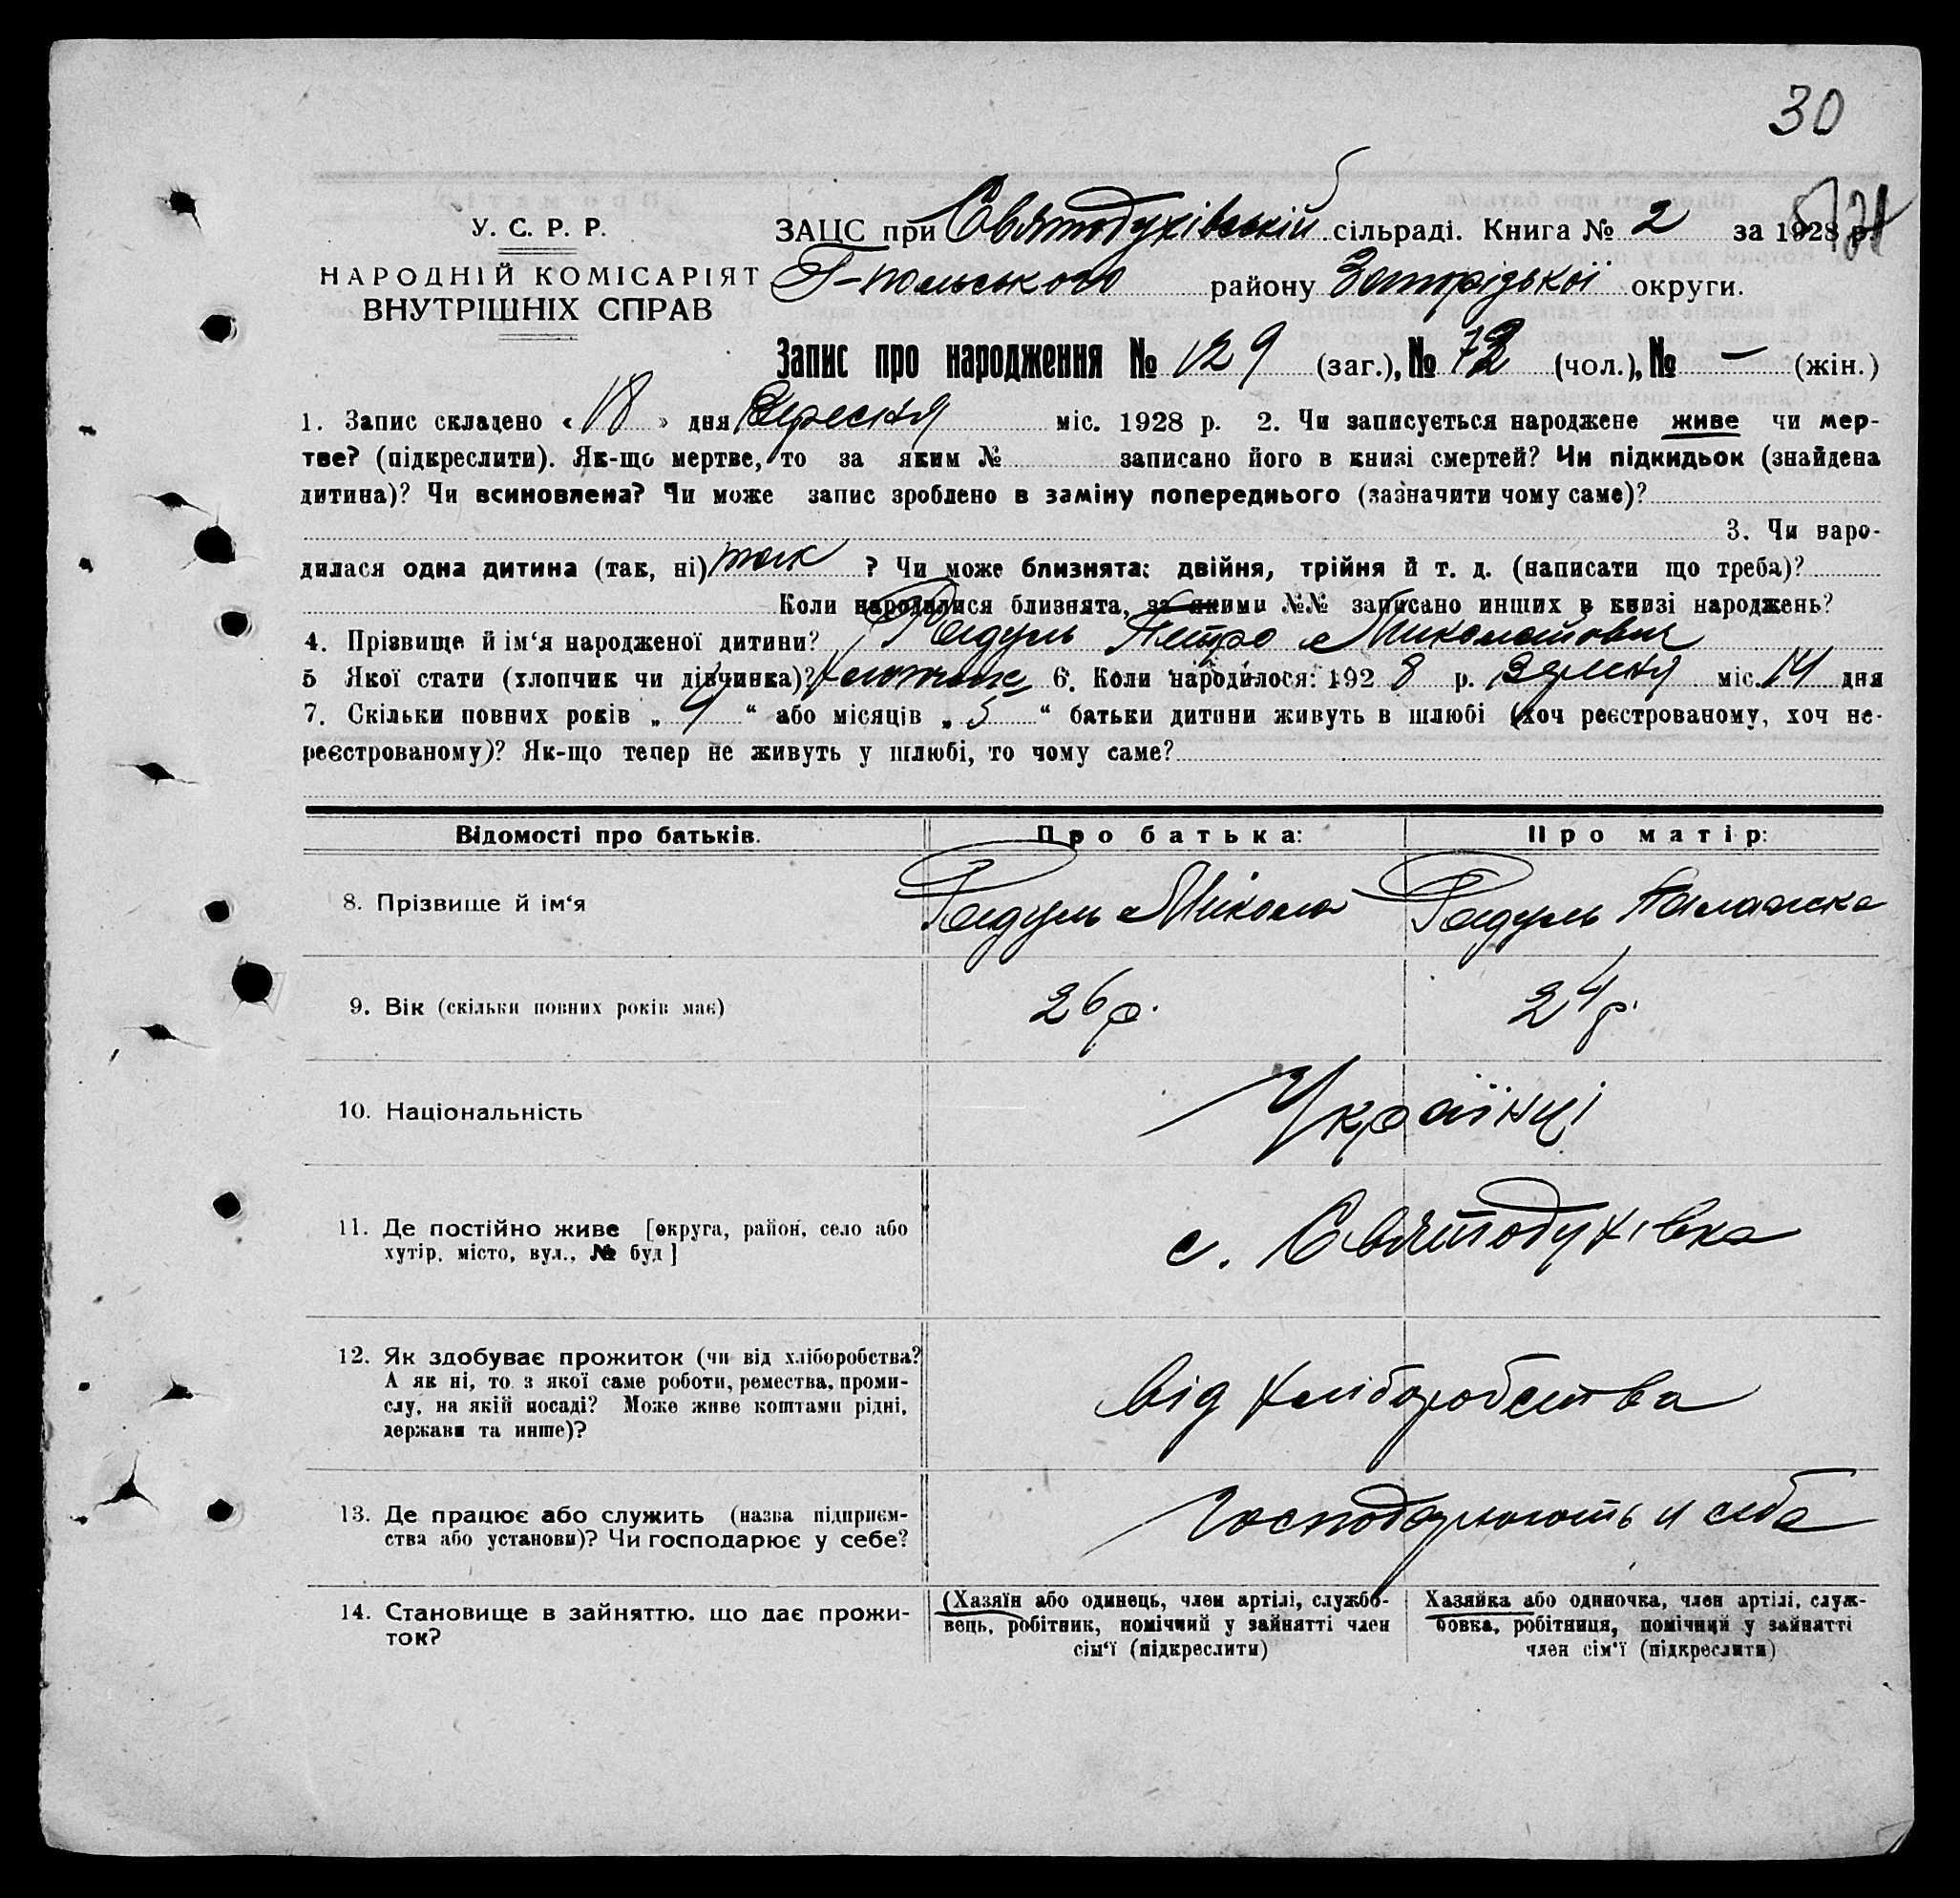 30
У. С. Р. Р.
НАРОДНІЙ КОМІСАРІЯТ
ВНУТРІШНІХ СПРАВ
ЗАЦС при Святодухівській сільраді. Книга № 2 за 1928 р.
Г-польського району Запорізької округи.
Запис про народження № 129 (заг.), № 72 (чол.), № — (жін.)
1. Запис складено « 18 » дня Вересня міс. 1928 р. 2. Чи записується народжене живе чи мер-
тве? (підкреслити). Як-що мертве, то за яким № записано його в книзі смертей? Чи підкидьок (знайдена
дитина)? Чи всиновлена? Чи може запис зроблено в заміну попереднього (зазначити чому саме)?
3. Чи наро-
дилася одна дитина (так, ні) так ? Чи може близнята: двійня, трійня й т. д. (написати що треба)?
Коли народилися близнята, за якими №№ записано инших в книзі народжень?
4. Прізвище й ім‘я народженої дитини? Радуль Петро Миколайович
5 Якої стати (хлопчик чи дівчинка)? 6. Коли народилося: 192 8 р. Вересня міс. 14 дня
7. Скільки повних років „ 4 “ або місяців „ 5 “ батьки дитини живуть в шлюбі (хоч реєстрованому, хоч не-
реєстрованому)? Як-що тепер не живуть у шлюбі, то чому саме?
Відомості про батьків. Про батька: Про матір:
8. Прізвище й ім‘я Радуль Микола Радуль Палажка
9. Вік (скільки повних років має) 26 р. 24 р.
10. Національність Українці
11. Де постійно живе [округа, район, село або
хутір, місто, вул., № буд] с. Святодухівка
12. Як здобуває прожиток (чи від хліборобства?
А як ні, то з якої саме роботи, ремества, проми-
слу, на якій посаді? Може живе коштами рідні,
держави та инше)? від хліборобства
13. Де працює або служить (назва підприєм-
ства або установи)? Чи господарює у себе? Господарюють у себе
14. Становище в зайняттю, що дає прожи-
ток?
(Хазяїн або одинець, член артілі, службо-
вець, робітник, помічний у зайнятті член
сім‘ї (підкреслити)
Хазяйка або одиночка, член артілі, служ-
бовка, робітниця, помічний у зайнятті
член сім‘ї (підкреслити)